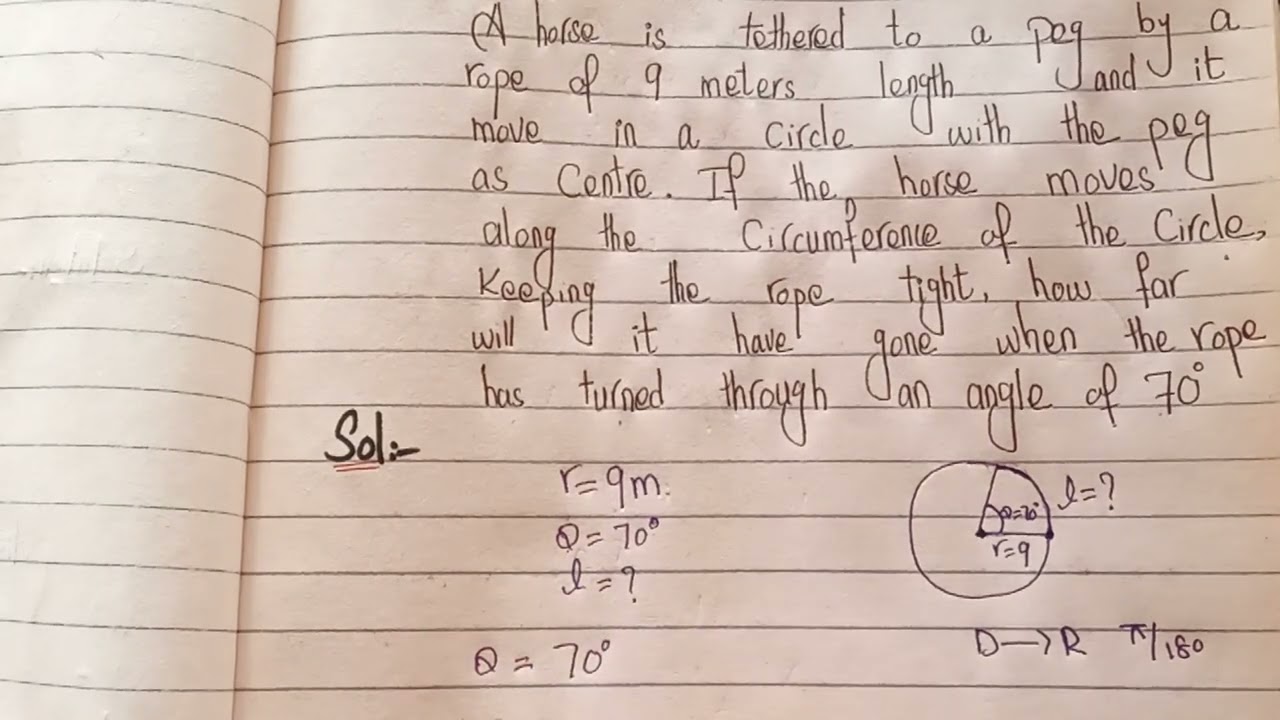 (A horse is tethered to a peg by a
rope of 9 meters length and it
move in a circle with the peg
as Centre. If the horse moves
along the Circumference of the Circle,
Keeping the rope tight, how far
will it have gone when the rope
has turned through an angle of 70°
Sol:-
r=9m.
θ = 70°
l = ?
θ=70°
l=?
r=9
θ = 70°
D→R π/180